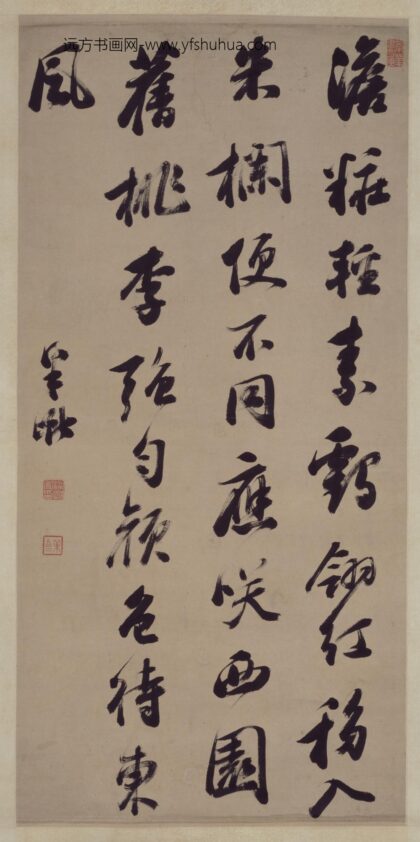 远方书画网-www.yfshuhua.com
澹粧輕素鶴翎紅移入
朱欄便不同應笑西園
舊桃李強勻顏色待東
風